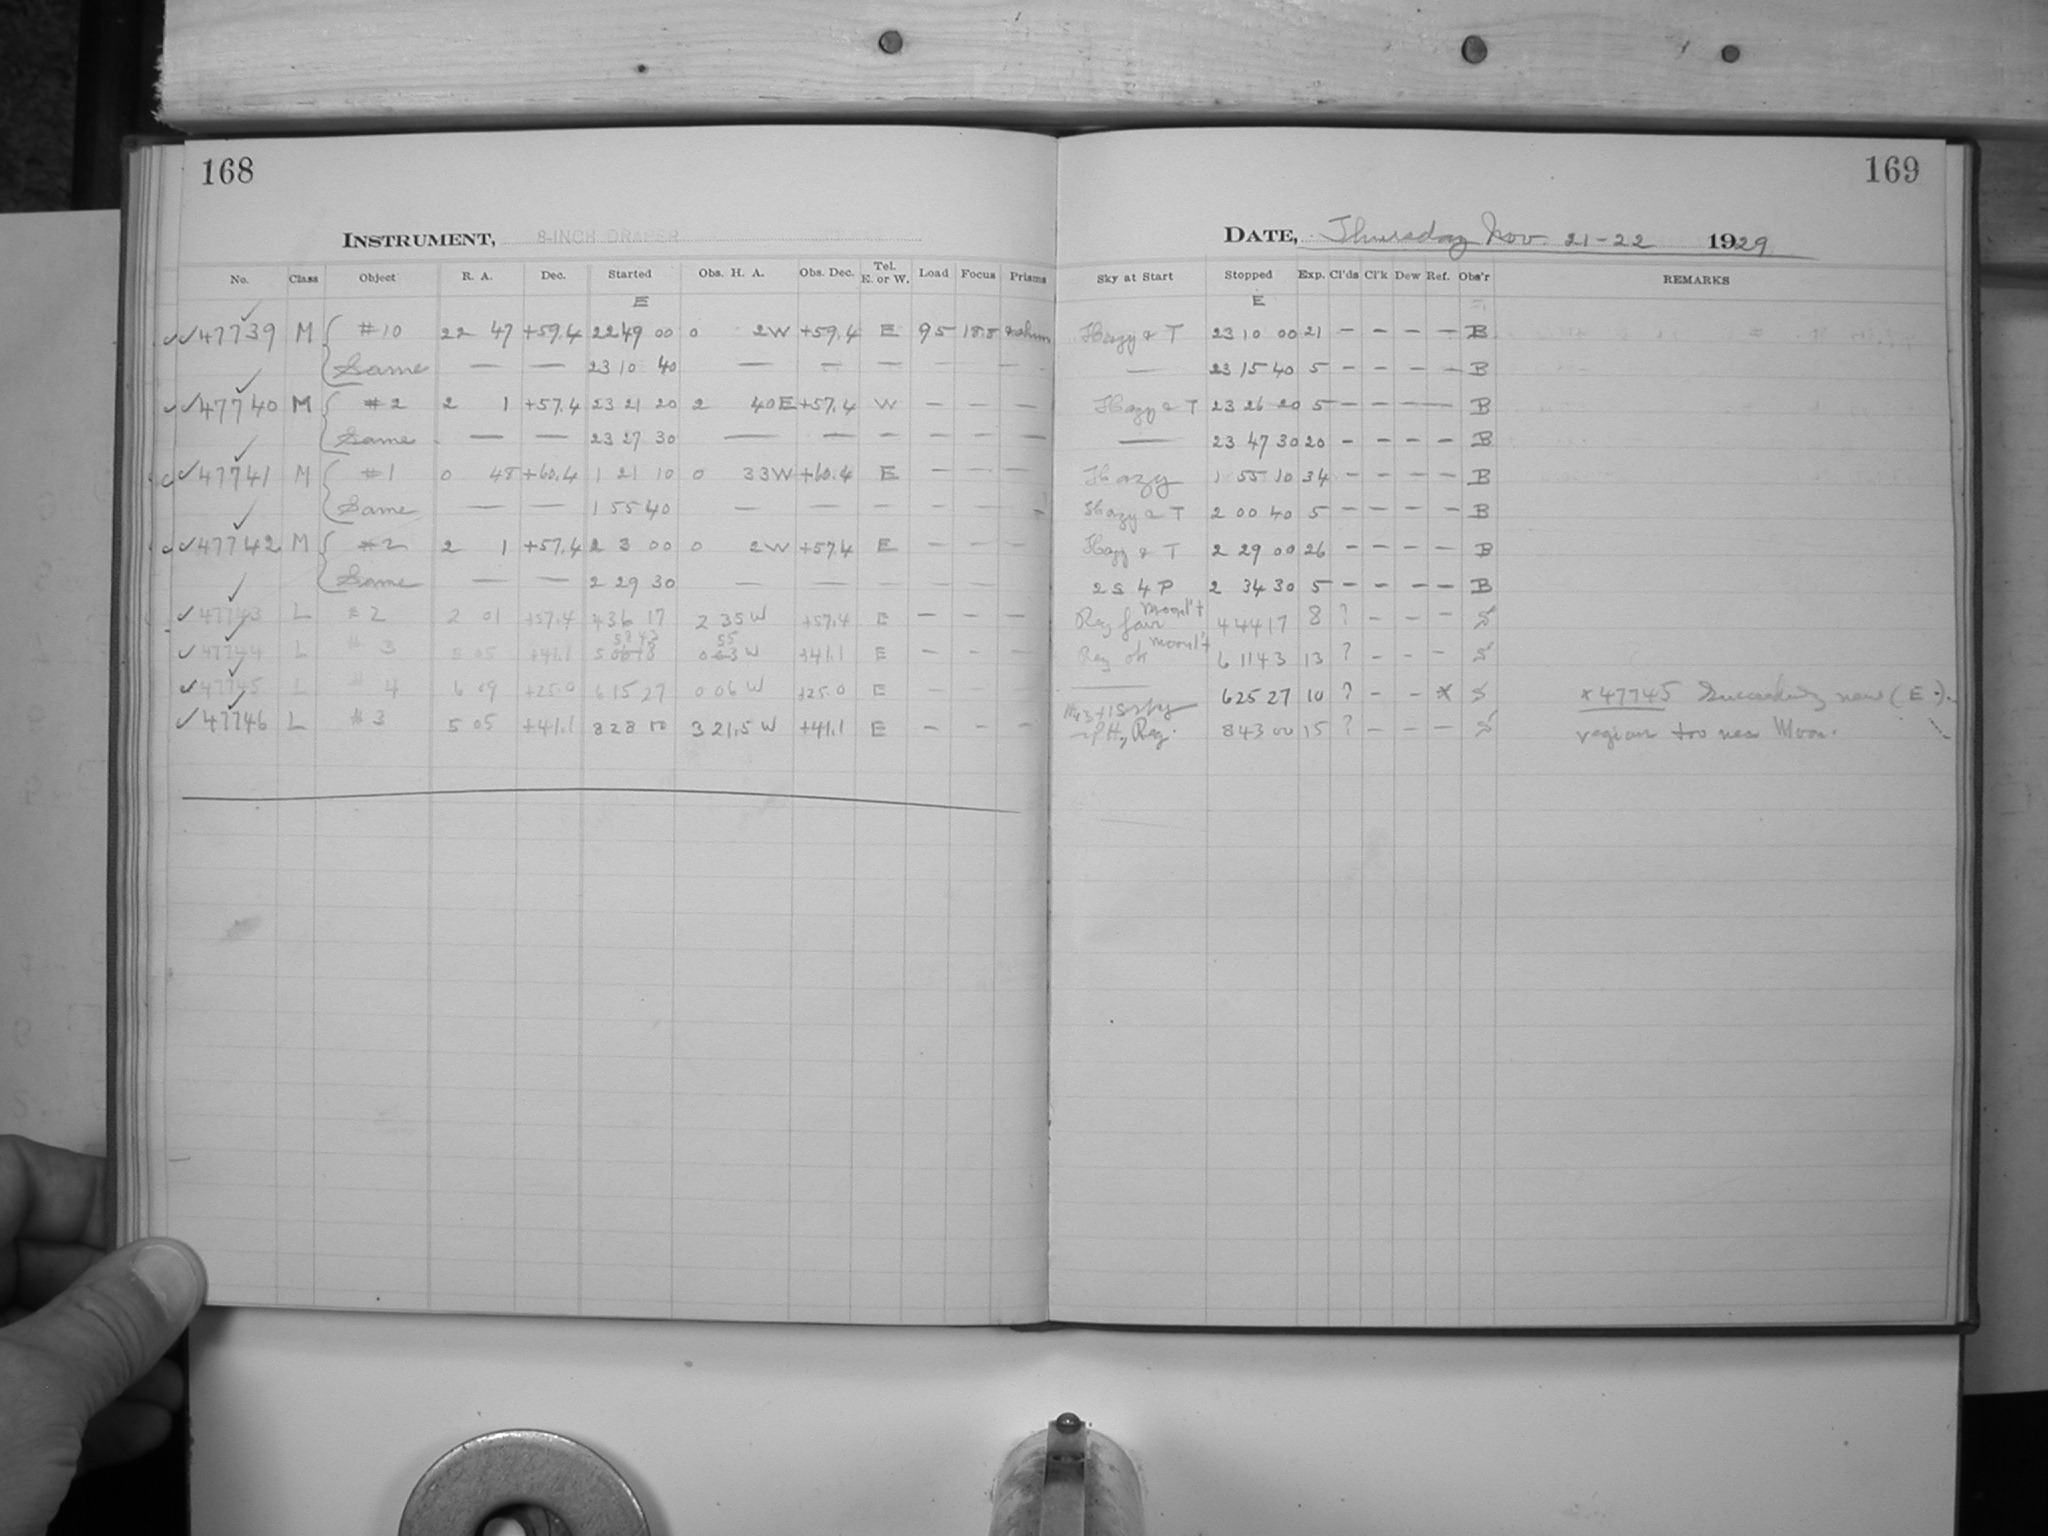 168
INSTRUMENT, 8-INCH DRAPER
No. Class Object R. A. Dec. Started Obs. H. A. Obs. Dec. Tel. E. or W. Load Focus Prisms
E
47739 M #10 22 47 +59.4 22 49 00 0 2W +59.4 E 95 18.8
Same — — 23 10 40 — — — — — —
47740 M #2 2 1 +57.4 23 21 20 2 40E +57.4 W — — —
Same — — 23 27 30 — — — — — —
47741 M #1 0 48 +60.4 1 21 10 0 33W +60.4 E — — —
Same — — 1 55 40 — — — — — —
47742 M #2 2 1 +57.4 2 3 00 0 2W +57.4 E — — —
Same — — 2 29 30 — — — — — —
47743 L #2 2 01 +57.4 4 36 17 2 35 W +57.4 E — — —
47744 L #3 5 05 +41.1 58 43 55 W +41.1 E — — —
47745 L #4 6 09 +25.0 6 15 27 0 06 W +25.0 E — — —
47746 L #3 5 05 +41.1 8 28 3 21.5 W +41.1 E — — —
169
DATE, Thursday Nov. 21-22 1929
Sky at Start Stopped Exp. Cl'ds Cl'k Dew Ref. Obs'r REMARKS
E
Hazy & T 23 10 00 21 — — — — B
— 23 15 40 5 — — — — B
Hazy & T 23 26 20 5 — — — — B
— 23 47 30 20 — — — — B
Hazy 1 55 10 34 — — — — B
Hazy & T 2 00 40 5 — — — — B
Hazy & T 2 29 00 26 — — — — B
2 S 4 P 2 34 30 5 — — — — B
Reg fair Moonl't 4 44 17 8 ? — — — S
Reg ok Moonl't 6 11 43 13 ? — — — S
— 6 25 27 10 ? — — * S * 47745 Succeeding new (E.)
Hy Reg. 8 43 00 15 ? — — — S region too near Moon.